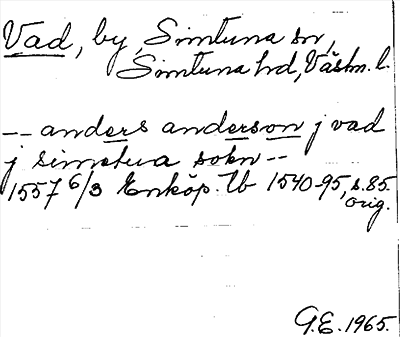 Vad, by, Simtuna sn,
Simtuna hd, Västm. l.
-- anders anderson j vad
j simetua sokn --
1557 6/3 Enköp. Tb 1540-95, s. 85.
orig.
G.E. 1965.